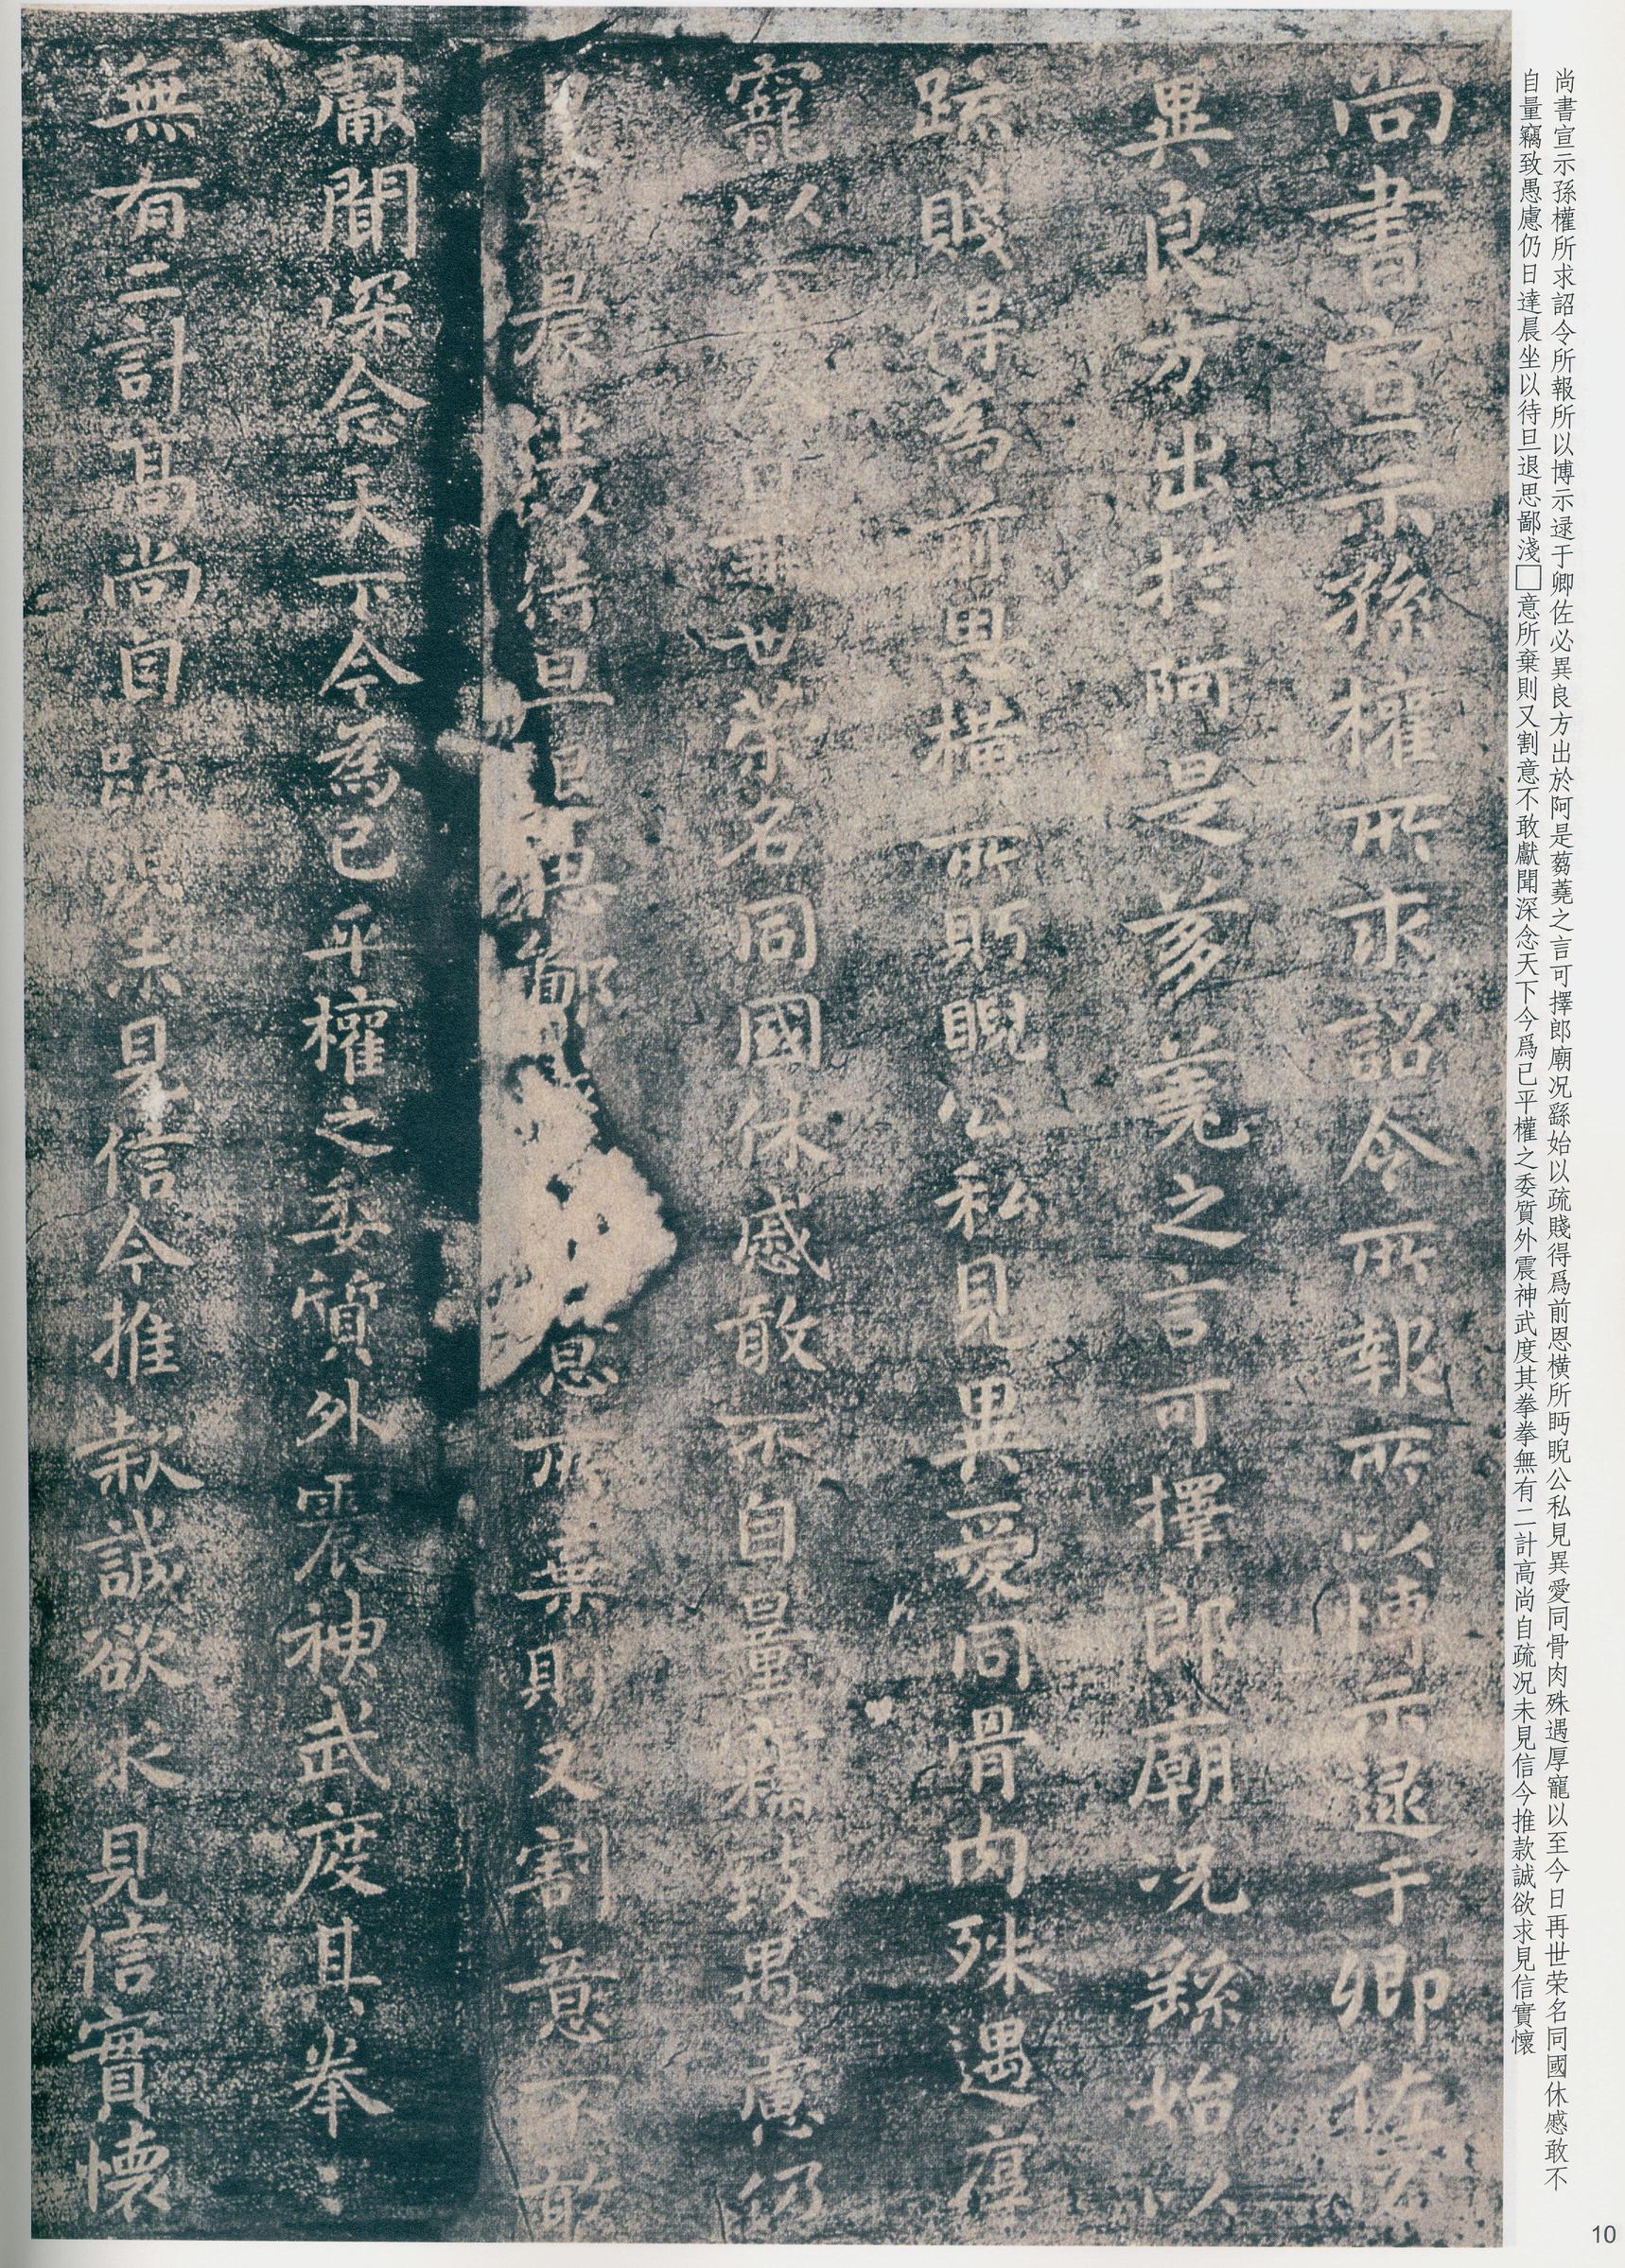 尚書宣示孫權所求詔令所報所以博示逯于卿佐必異良方出於阿是蒭蕘之言可擇郎廟况繇始以疏賤得爲前恩橫所眄睨公私見異愛同骨肉殊遇厚寵以至今日再世荣名同國休慼敢不
自量竊致愚慮仍日達晨坐以待旦退思鄙淺□意所棄則又割意不敢獻聞深念天下今爲已平權之委質外震神武度其拳拳無有二計高尚自疏况未見信今推款誠欲求見信實懷
尚書宣示孫權所求詔令所報所以博示逯于卿佐必
異良方出於阿是蒭蕘之言可擇郎廟况繇始以
疏賤得為前恩橫所眄睨公私見異愛同骨肉殊遇厚
寵以至今日再世荣名同國休慼敢不自量竊致愚慮仍
日達晨坐以待旦退思鄙淺思所棄則又割意不敢
獻聞深念天下今為已平權之委質外震神武度其拳〻
無有二計高尚自疏况未見信今推款誠欲求見信實懷
10